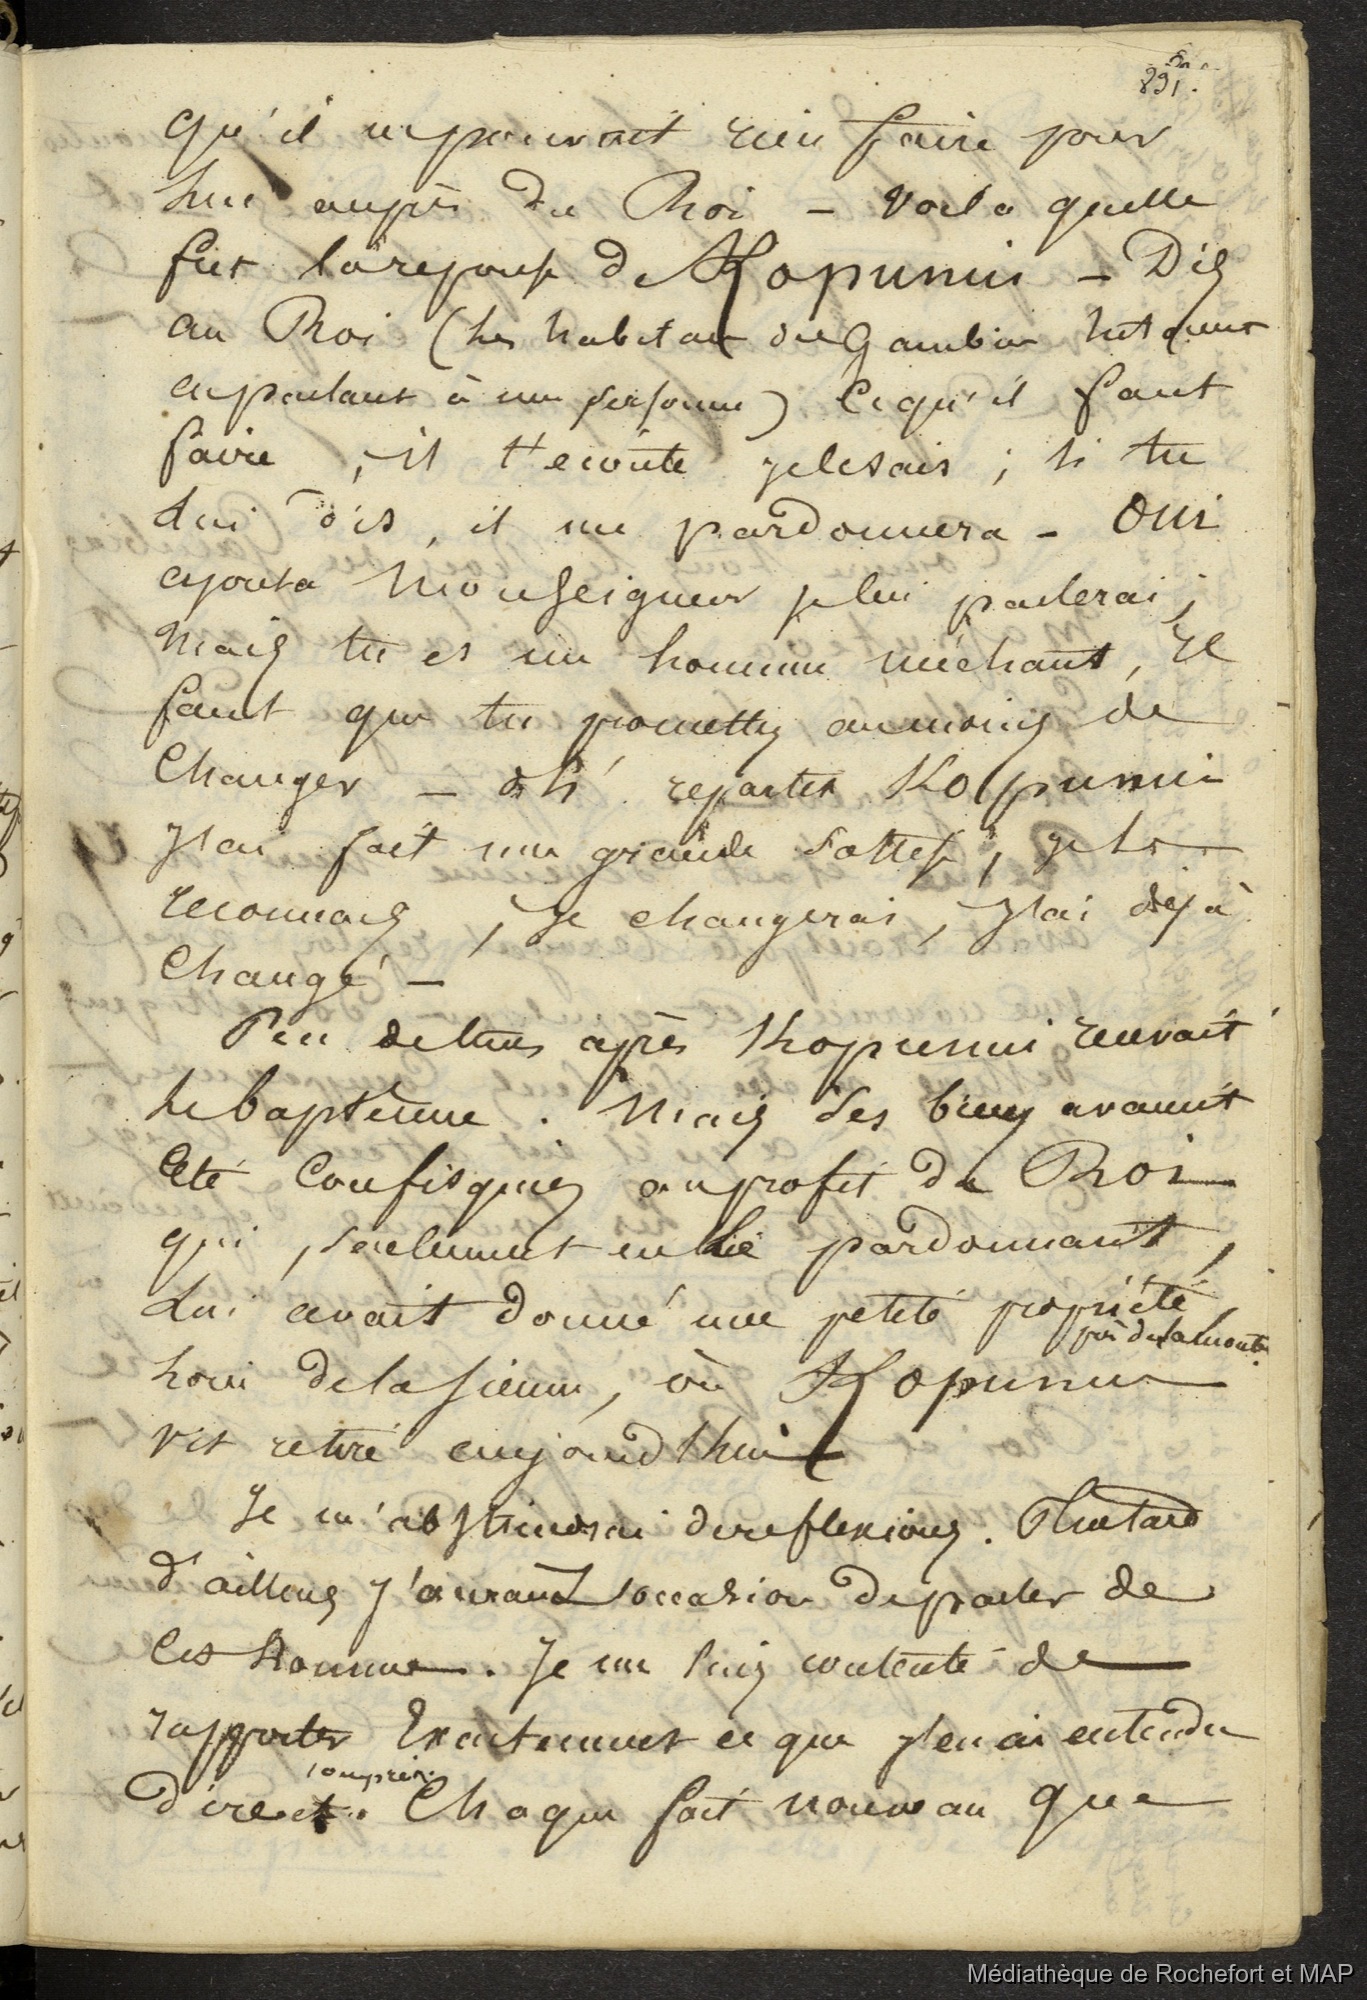 891.
qu'il ne pouvait rien faire pour
lui auprès du Roi – Voila quelle
fut la reponse de Kopunui – Dis
au Roi (les habitans des Gambier tutoyent
en parlant à une personne) ce qu'il faut
faire, il t'ecoute je le sais ; si tu
lui dis, il me pardonnera – oui
ajouta Monseigneur je lui parlerai ;
Mais tu es un homme méchant, Il
faut que tu promettes au moins de
Changer – oh! repartit Kopunui
J'ai fait une grande sottise, je le
reconnais, Je changerai, J'ai déjà
Changé –
Peu de tems après Kopunui recevait
le baptème. Mais ses biens avaient
Eté Confisqués au profit du Roi
qui, seulement en lui pardonnant,
lui avait donné une petite propriété,
près de la montagne
loin de la sienne, où Kopunui
vit retiré aujourd'hui
Je m'abstiendrai de reflexions. Plus tard
d'ailleurs J'aurai l'occasion de parler de
Cet homme. Je me suis contenté de
rapporter Exactement ce que J'en ai entendu
compris.
dire et. Chaque fait nouveau que
Médiathèque de Rochefort et MAP